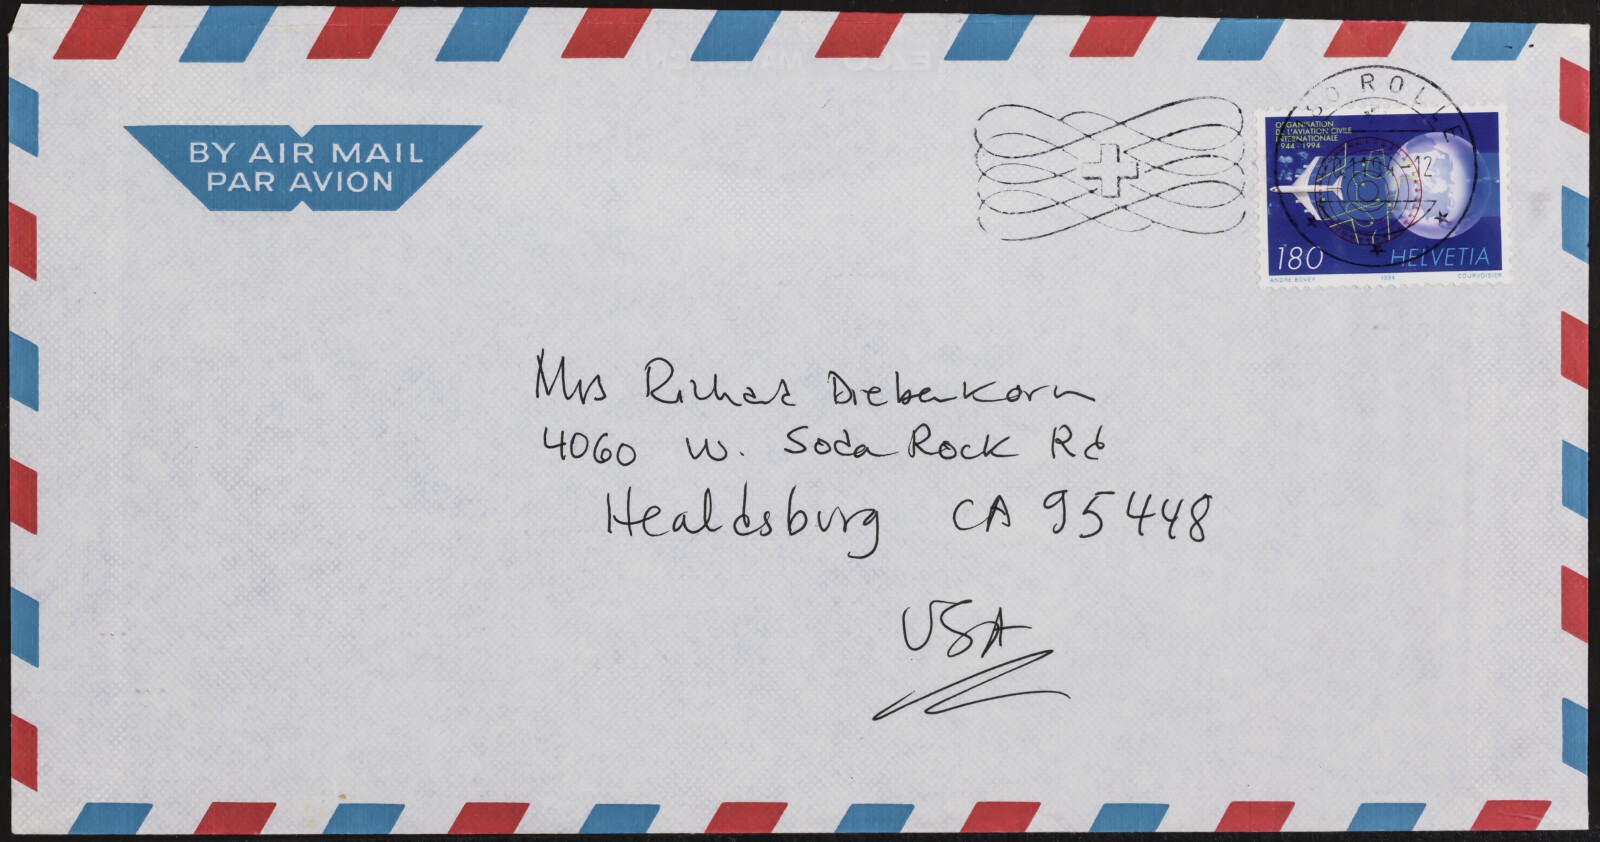 BY AIR MAIL
PAR AVION
ROLLE
ORGANISATION
DE L'AVIATION CIVILE
INTERNATIONALE
1944 - 1994
180
HELVETIA
ANDRE BOVEY
1994
COURVOISIER
Mrs Richard Diebenkorn
4060 W. Soda Rock Rd
Healdsburg CA 95448
USA